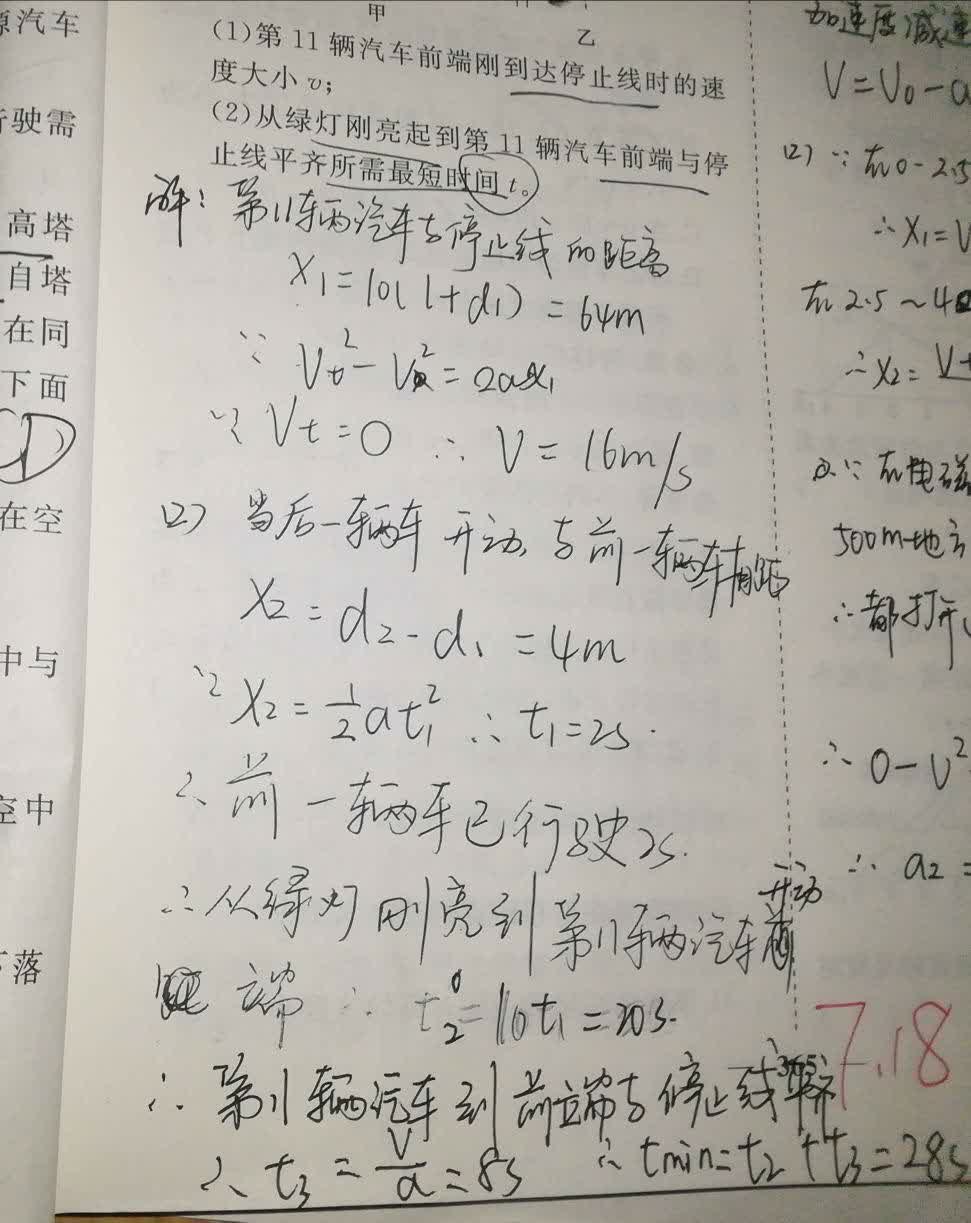 源汽车
行驶需
高塔
自塔
在同
下面
D
在空
中与
空中
下落
甲
乙
(1)第 11 辆汽车前端刚到达停止线时的速
度大小 v;
(2)从绿灯刚亮起到第 11 辆汽车前端与停
止线平齐所需最短时间 t。
解: 第11辆汽车与停止线的距离
X₁=10(l+d₁)=64m
∵ Vt²-V²=2ax₁
∵ Vt=0 ∴ V=16m/s
(2) 当后一辆车开动,与前一辆车相距
X₂=d₂-d₁=4m
∵ X₂=½at₁² ∴ t₁=2s.
∴ 前一辆车已行驶2s.
∴从绿灯刚亮到第11辆汽车前
开动
端 ∴ t₂=10t₁=20s.
∴ 第11辆汽车到前端与停止线平齐
∴ t₃=V/a=8s ∴ tmin=t₂+t₃=28s
加速度减速
V=V₀-a
(2) ∵ 在0-2.5
∴X₁=V
在2.5~4
∴X₂=
∵在电磁
500m地方
∴都打开
∴ 0-V²
∴ a₂=
7.18